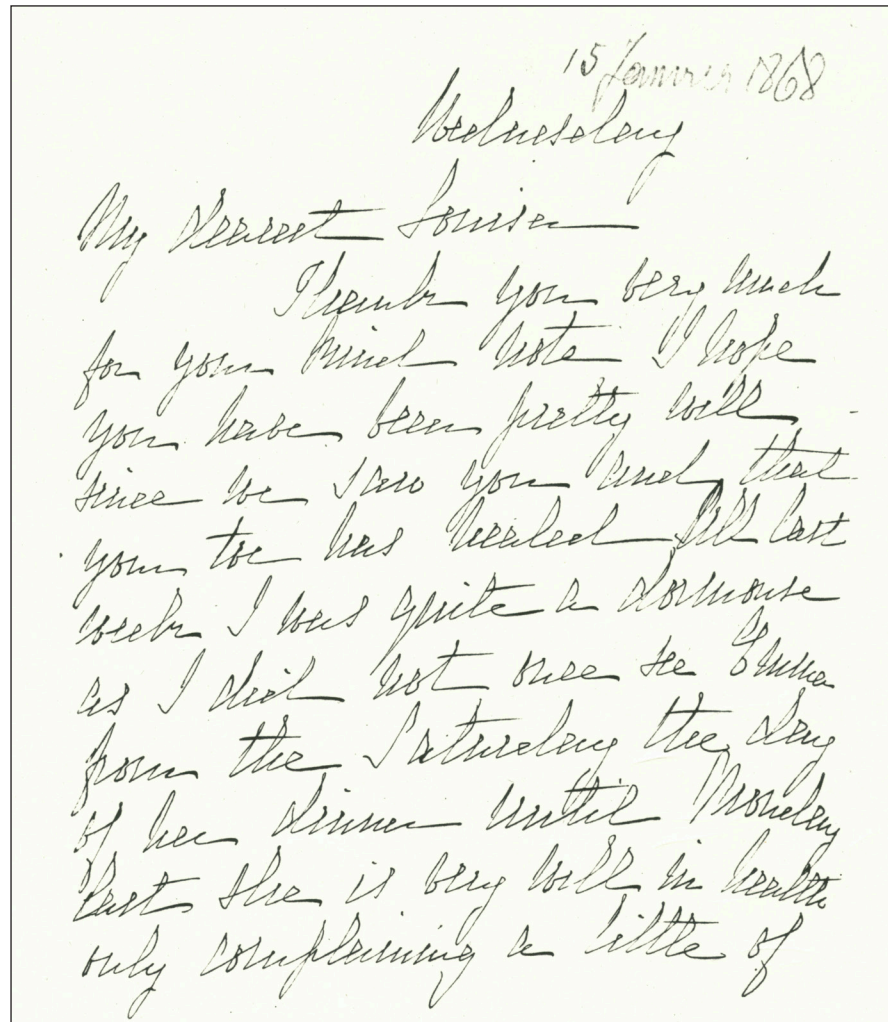 15 Janvier 1868
Wednesday
My dearest Louisa
Thank you very much
for your kind note I hope
you have been pretty well
since we saw you and that
your toe has healed till last
week I was quite a dormouse
as I did not once see Emma
from the Saturday the day
of her dinner until Monday
last she is very well in health
only complaining a little of